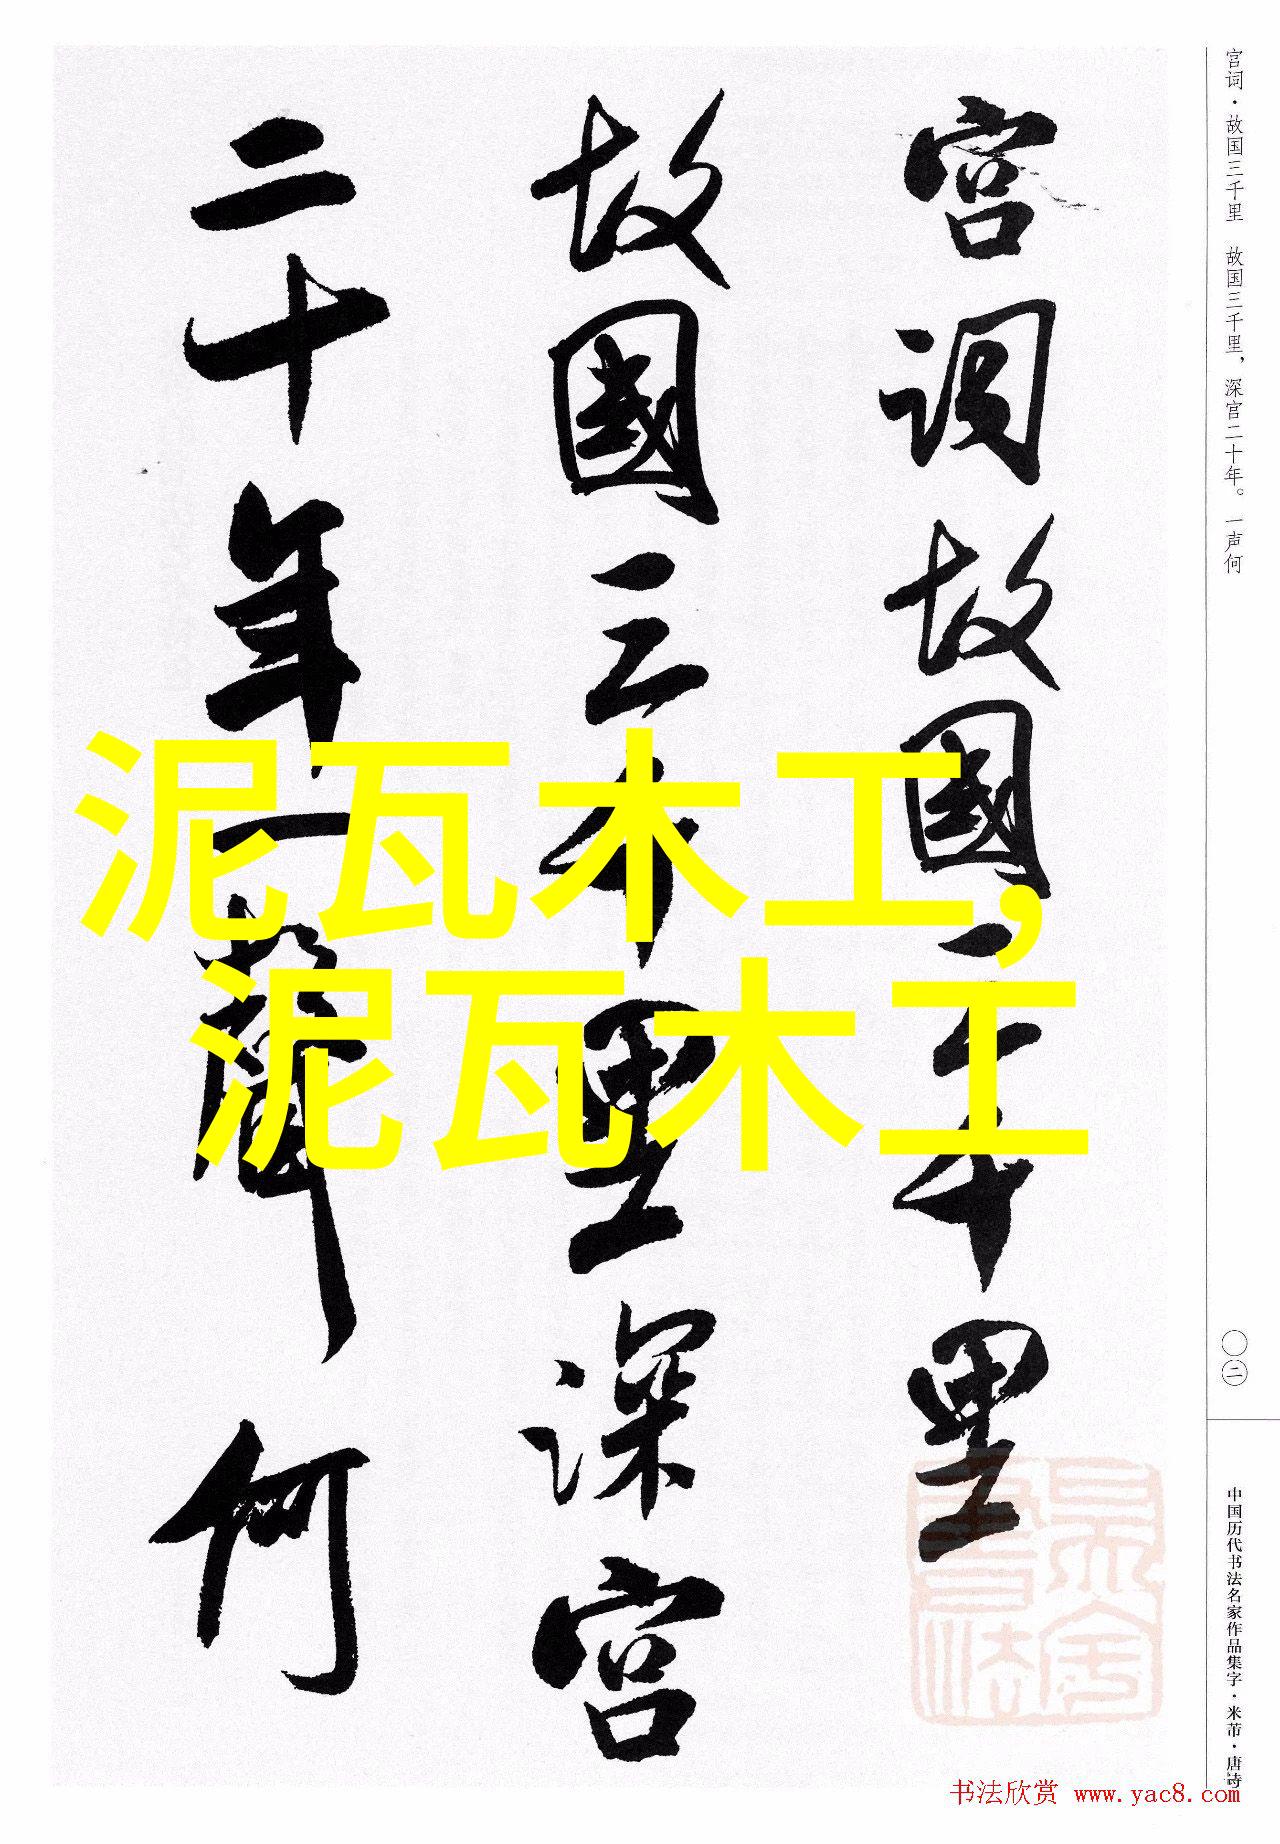 宫词·故国三千里　故国三千里，深宫二十年。一声何
宫词故國三千里
故國三千里深宫
二十年一聲何
泥瓦木工，
泥瓦木工
〇二
中国历代书法名家作品集字·米芾·唐诗
书法欣赏 www.yac8.com